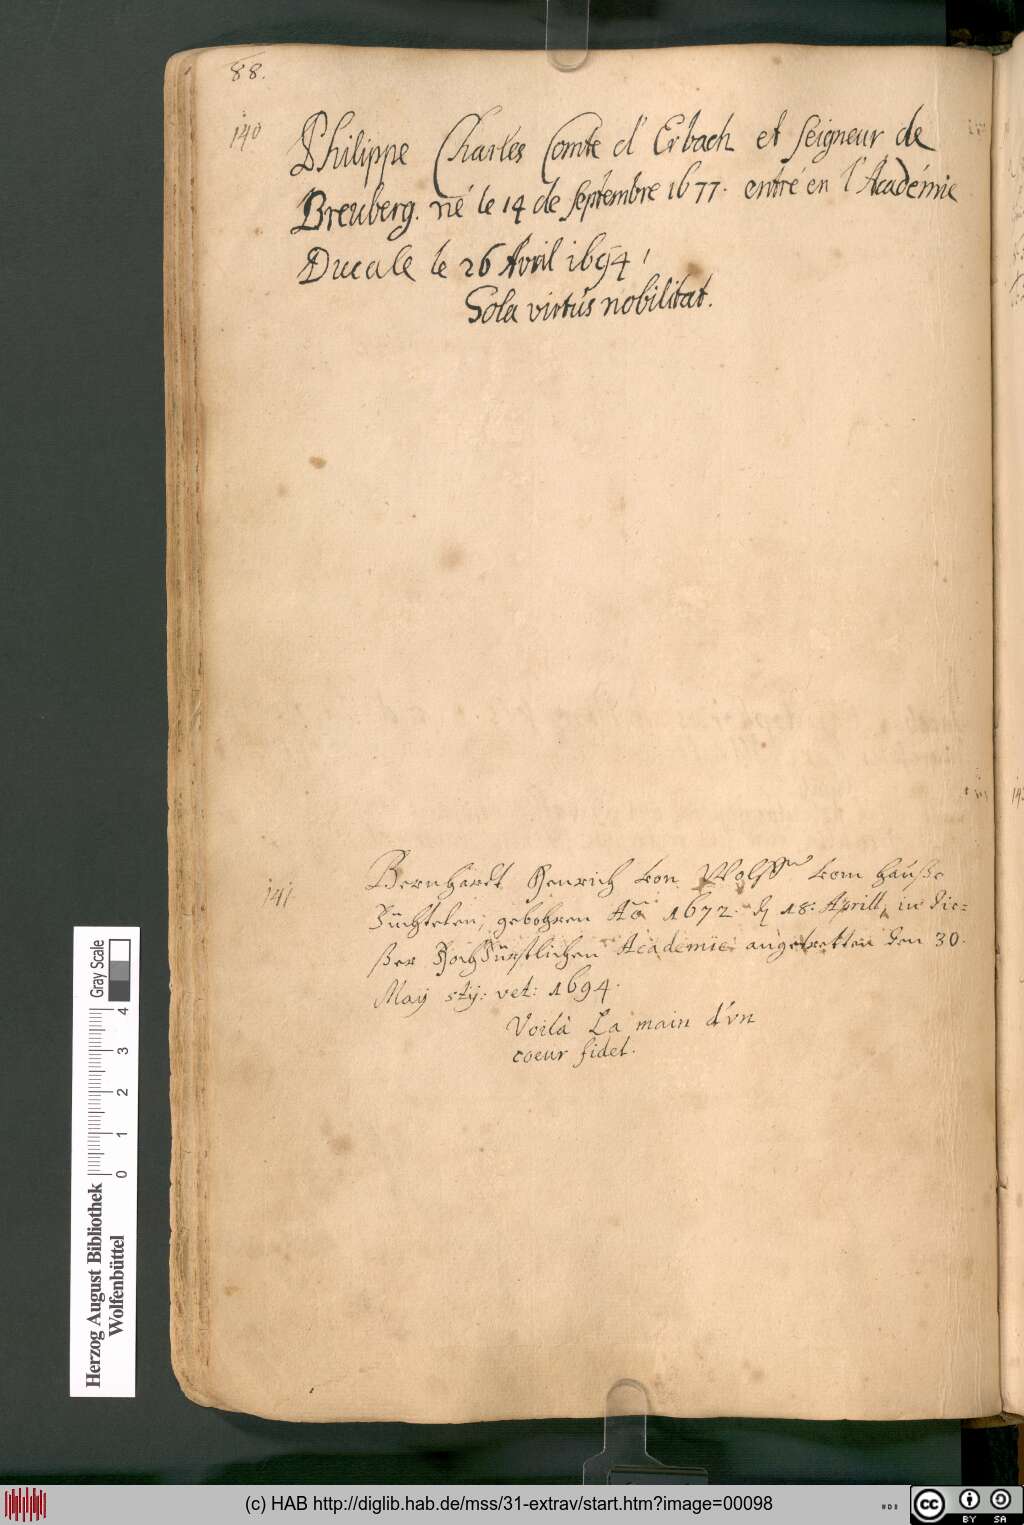 88.
140
Philippe Charles Comte d'Erbach et seigneur de
Breuberg. né le 14 de septembre 1677. entré en l'Académie
Ducale le 26 Avril 1694,
Sola virtus nobilitat.
141
Bernhardt Henrich von Wolff vom hauße
Füchtelen, gebohren Aõ 1672. d 18: Aprill, in die=
ßer HochFürstlichen Academie angetretten den 30.
May sty: vet: 1694.
Voilà La main d'vn
coeur fidel.
Gray Scale
0 1 2 3 4
Herzog August Bibliothek
Wolfenbüttel
(c) HAB http://diglib.hab.de/mss/31-extrav/start.htm?image=00098
cc BY SA